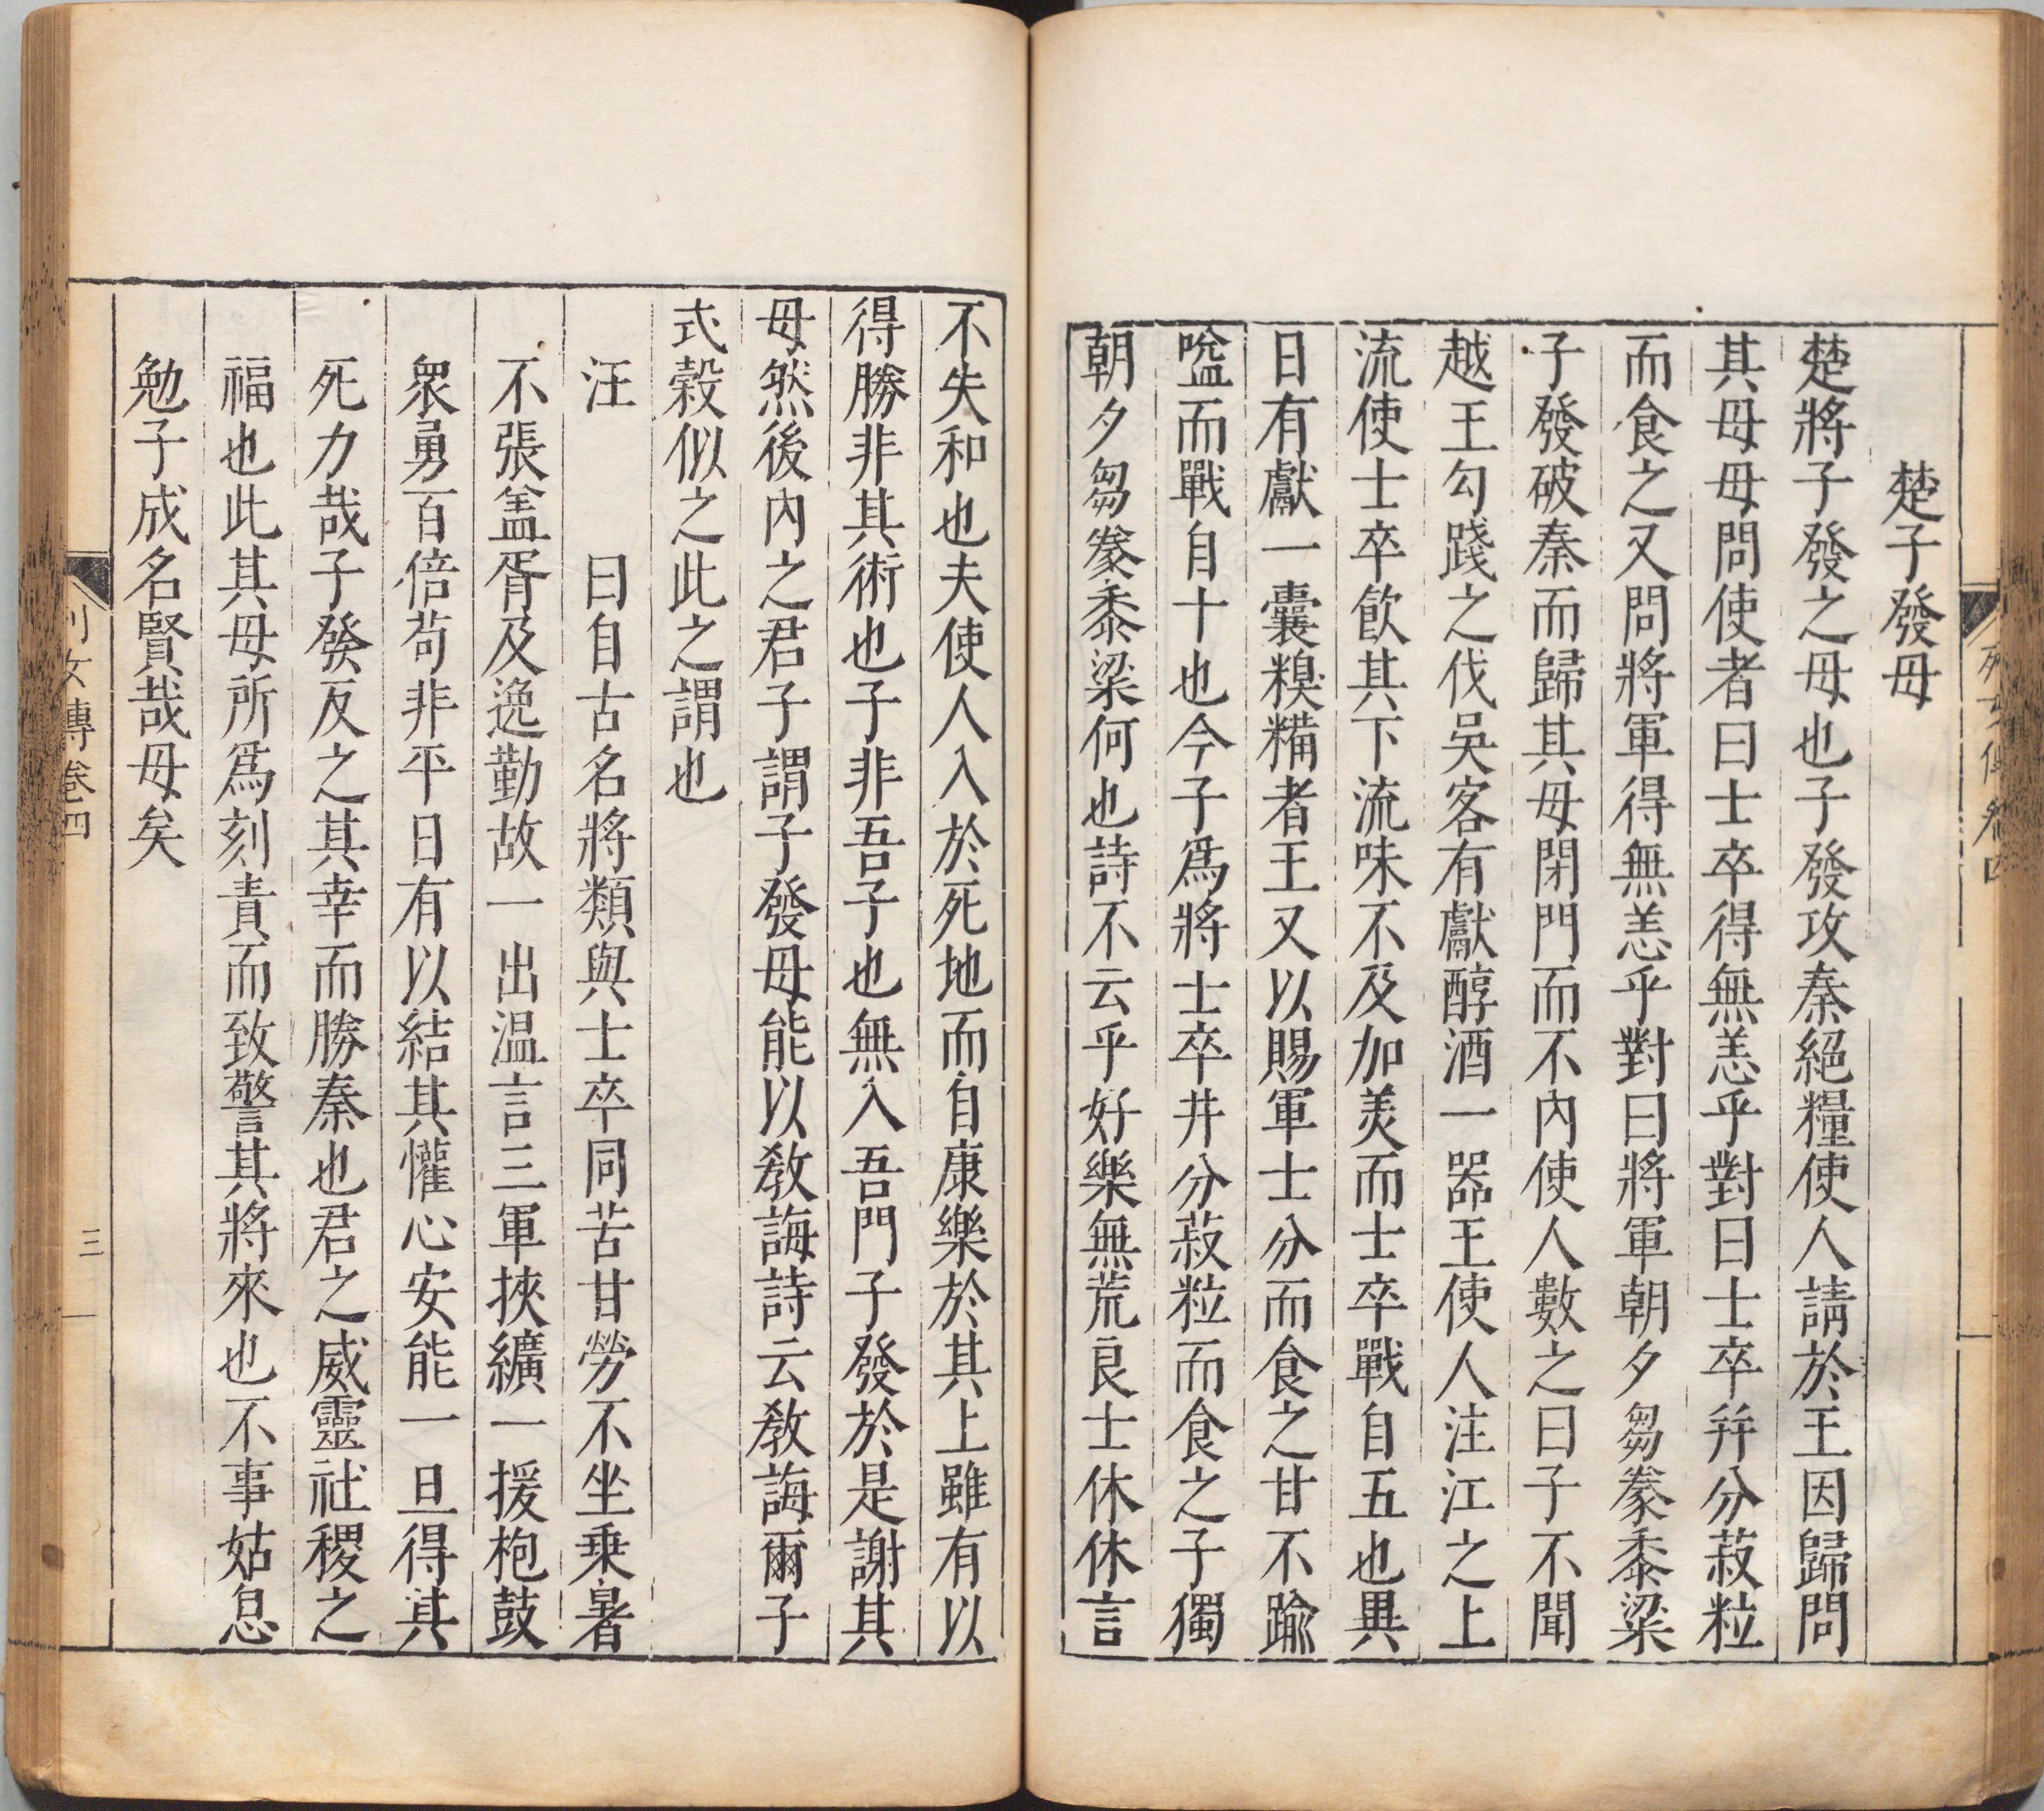 楚子發母
楚將子發之母也子發攻秦絕糧使人請於王因歸問
其母母問使者曰士卒得無恙乎對曰士卒幷分菽粒
而食之又問將軍得無恙乎對曰將軍朝夕芻豢黍粱
子發破秦而歸其母閉門而不內使人數之曰子不聞
越王勾踐之伐吳客有獻醇酒一器王使人注江之上
流使士卒飮其下流味不及加美而士卒戰自五也異
日有獻一囊糗糒者王又以賜軍士分而食之甘不踰
嗌而戰自十也今子爲將士卒井分菽粒而食之子獨
朝夕芻豢黍粱何也詩不云乎好樂無荒良士休休言
不失和也夫使人入於死地而自康樂於其上雖有以
得勝非其術也子非吾子也無入吾門子發於是謝其
母然後內之君子謂子發母能以敎誨詩云敎誨爾子
式穀似之此之謂也
汪 曰自古名將類與士卒同苦甘勞不坐乗暑
不張盖胥及逸勤故一出溫言三軍挾纊一援枹鼓
衆勇百倍苟非平日有以結其懽心安能一旦得其
死力哉子發反之其幸而勝秦也君之威靈社稷之
福也此其母所爲刻責而致警其將來也不事姑息
勉子成名賢哉母矣
列女傳卷四
三